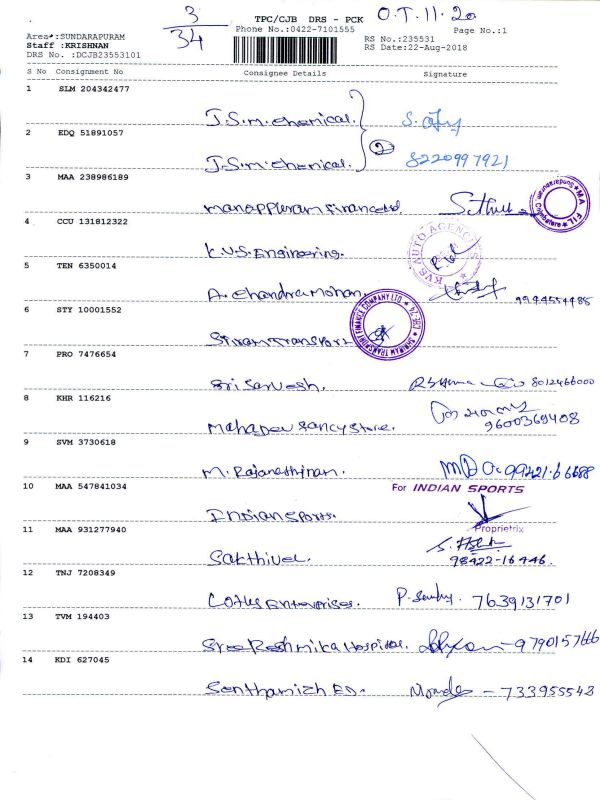 3
34
TPC/CJB DRS - PCK
O.T. 11.20
Phone No.:0422-7101555
Page No.:1
Area* :SUNDARAPURAM
Staff :KRISHNAN
DRS No. :DCJB23553101
RS No.:235531
RS Date:22-Aug-2018
S No Consignment No Consignee Details Signature
1 SLM 204342477
J.S.M. chemical.
2 EDQ 51891057
2
J.S.M. chemical. 8220997921
3 MAA 238986189
manappuram Finance
4 CCU 131812322
K.V.S. Engineering.
KVS AUTO AGENCY
5 TEN 6350014
A. Chandramohan. 9994554485
6 STY 10001552
SHRIRAM TRANSPORT FINANCE COMPANY LTD
Sriram Transport
7 PRO 7476654
Sri Sarvesh. 8012466000
8 KHR 116216
Mahadev fancy store. 9600369408
9 SVM 3730618
M. Rajarathinam. 99421.66688
10 MAA 547841034
For INDIAN SPORTS
Indian sports.
Proprietrix
11 MAA 931277940
Sakthivel. 98422-16446.
12 TNJ 7208349
Lotus Enterprises. 7639131701
13 TVM 194403
Sree Reshmika Hospital. 9790157666
14 KDI 627045
Senthamizh ED. - 733955543